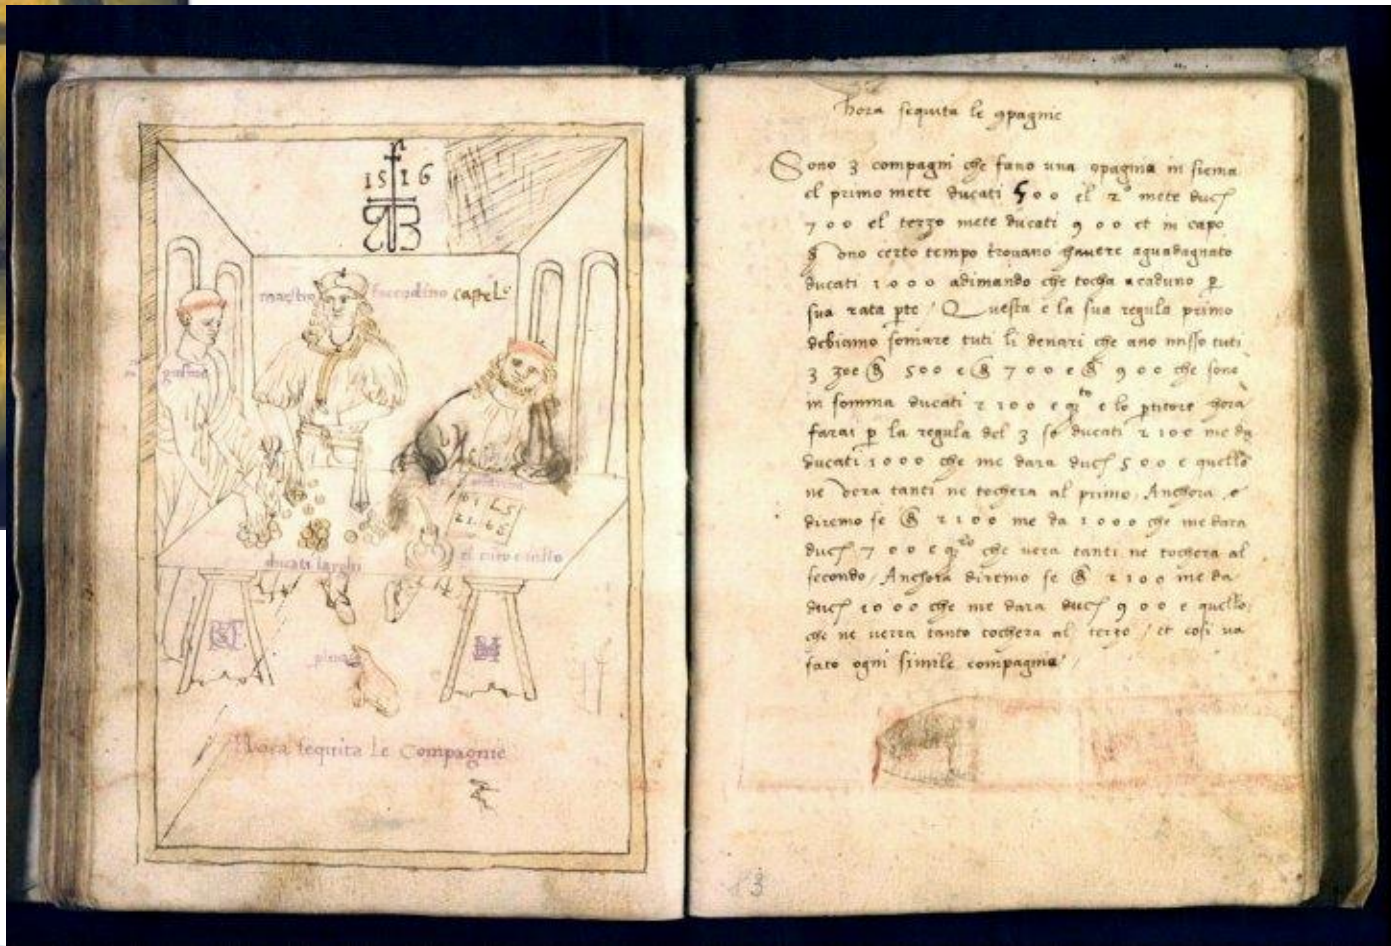 1516
maestro
castel
ducati larghi
Hora sequita Le Compagnie
hora sequita le 9pagnie
Sono 3 compagni che fano una 9pagnia in siema
el primo mete ducati 500 el 2º mete duc
700 el terzo mete ducati 900 et in capo
ono certo tempo trovano havere aguadagnato
ducati 1000 adimando che tocha acaduno p
sua rata pte / Questa e la sua regula primo
debiamo somare tuti li denari che ano misso tuti
3 zoe 500 e 700 e 900 che sono
in somma ducati 2100 e qto e lo ptitore hora
farai p la regula del 3 se ducati 2100 me da
ducati 1000 che me dara duc 500 e quello
ne vera tanti ne tochera al primo. Anchora
diremo se 2100 me da 1000 che me dara
duc 700 e che vera tanti ne tochera al
secondo / Anchora diremo se 2100 me da
duc 1000 che me dara duc 900 e quello
che ne verra tanto tochera al terzo / et cosi va
fato ogni simile compagnia /
3